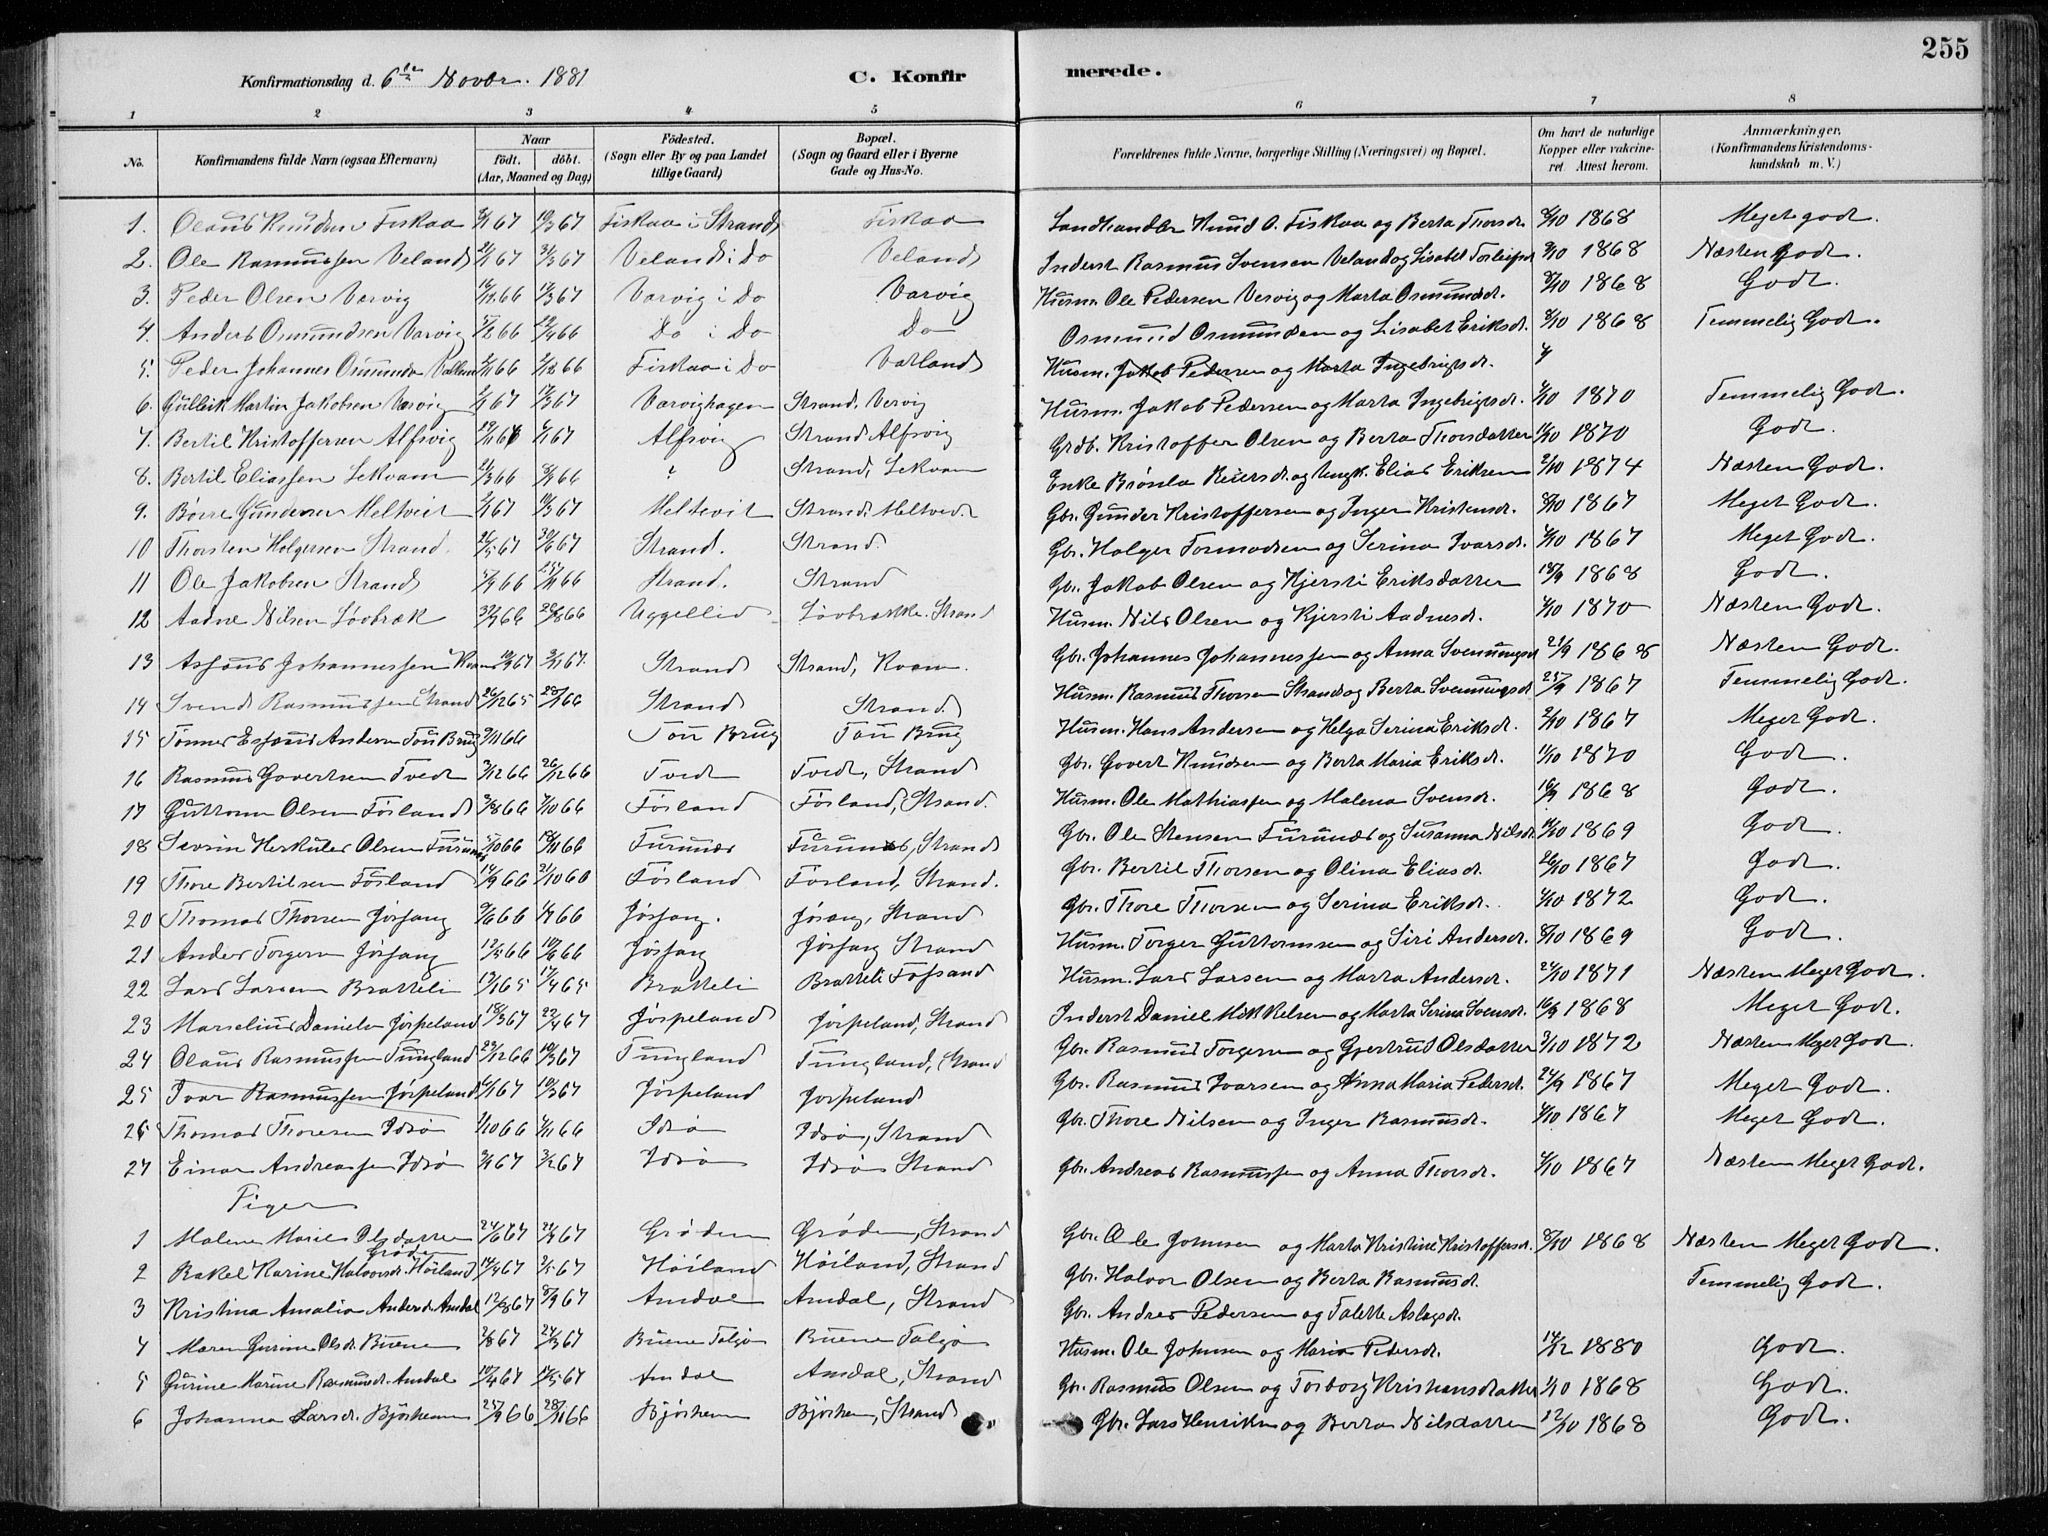 255
Konfirmationsdag d. 6te Novbr. 1881 C. Konfirmerede.
1 2 3 4 5 6 7 8
No. Konfirmandens fulde Navn (ogsaa Efternavn) Naar født. døbt. (Aar, Maaned og Dag) Födested. (Sogn eller By og paa Landet tillige Gaard) Bopæl. (Sogn og Gaard eller i Byerne Gade og Hus-No. Forældrenes fulde Navne, borgerlige Stilling (Næringsvei) og Bopæl. Om havt de naturlige Kopper eller vakcineret. Attest herom. Anmærkninger. (Konfirmandens Kristendomskundskab m. V.)
1. Olaus Knudsen Fiskaa 67 10/3 67 Fiskaa i Strand Fiskaa Landhandler Knud O. Fiskaa og Berta Thorsdr. 8/10 1868 Meget godt.
2. Ole Rasmussen Veland 21/1 67 31/3 67 Veland i Do Veland Inderst Rasmus Svensen Veland og Lisabet Torleifsdr 1868 Næsten Godt.
3. Peder Olsen Varvig 16/11 66 17/3 67 Varvig i Do Varvig Husm. Ole Pedersen Vervig og Marta Osmundsdr. 8/10 1868 Godt.
4. Anders Osmundsen Varvig 5/2 66 19/4 66 Do i Do Do Osmund Osmundsen og Lisabet Eriksdr. 8/10 1868 Temmelig Godt.
5. Peder Johannes Osmunds Vatland 66 66 Fiskaa i Do Vatland Husm. Jakob Pedersen og Marta Ingebrigtsdr.
6. Gulleik Martin Jakobsen Vervig 67 17/3 67 Varvighagen Strand, Vervig Husm. Jakob Pedersen og Marta Ingebrigtsdr. 1870 Temmelig Godt.
7. Bertil Kristoffersen Alfsvig 66 67 Alfsvig Strand Alfsvig Grdb. Kristoffer Olsen og Berta Thorsdatter 1870 Godt.
8. Bertil Eliassen Lekvam 21/3 66 66 " Strand, Lekvam Enke Brønla Reiersdr. og Ungk. Elias Eriksen 2/10 1874 Næsten Godt.
9. Børre Gundersen Meltveit 67 10/3 67 Meltevit Strand. Meltved. Gbr. Gunder Kristoffersen og Inger Kristensdr. 8/10 1867 Meget Godt.
10 Thorsten Holgersen Strand. 26/5 67 30/6 67 Strand. Strand. Gbr. Holger Tormodsen og Serina Ivarsdr. 1867 Meget Godt.
11 Ole Jakobsen Strand 66 25/11 66 Strand. Strand Gbr. Jakob Olsen og Kjersti Eriksdatter 18/9 1868 Godt.
12 Aadne Nilsen Løvbræk 66 26/8 66 Uggellid Løvbrække. Strand Husm. Nils Olsen og Kjersti Aadnesdr. 1870 Næsten Godt.
13 Asfæus Johannessen Kvam 67 67. Strand Strand, Kvam. Gbr. Johannes Johannessen og Anna Svenungsdr 21/9 1868 Næsten Godt.
14 Svend Rasmussen Strand 26/12 65 28/1 66 Strand Strand Husm. Rasmus Thorsen Strand og Berta Svenungsdr. 25/9 1867 Temmelig Godt.
15 Tønnes Esæus Andersen Tou Brug 66 Tou Brug Tou Brug Husm. Hans Andersen og Helga Serina Eriksdr. 2/10 1867 Meget Godt.
16 Rasmus Govertsen Tvedt 3/12 66 26/12 66 Tvedt Tvedt, Strand Gbr. Govert Knudsen og Berta Maria Eriksdr. 11/10 1870 Godt.
17 Guttorm Olsen Føsland 66 7/10 66 Fösland Fösland, Strand. Husm. Ole Mathiassen og Malena Svensdr. 16/9 1868 Godt.
18 Sevrin Herkules Olsen Furunæs 5/10 66 18/11 66 Furunæs Furunæs, Strand Gbr. Ole Stensen Furunæs og Susanna Nilsdr. 1869 Godt.
19 Thore Bertilsen Fösland 14/9 66 21/10 66 Fösland Fösland, Strand. Gbr. Bertil Thorsen og Olina Eliasdr. 26/10 1867 Godt
20 Thomas Thorsen Jøsfang 9/6 66 66 Jøsfang. Jøsang, Strand Gbr. Thore Thorsen og Serina Eriksdr. 1872 Godt.
21 Anders Torgersen Jøsfang 12/5 66 10/6 66 Jøsfang Jøsfang Strand Husm. Torger Guttormsen og Siri Andersdr. 8/10 1869 Godt.
22 Lars Larsen Bratteli 13/1 65 17/4 65 Bratteli Bratteli Fossand Husm. Lars Larsen og Marta Andersdr. 27/10 1871 Næsten Meget Godt.
23 Marselius Daniels Jørpeland 18/3 67 22/4 67 Jøspeland Jørpeland, Strand Inderst Daniel Mikkelsen og Marta Serina Svensdr. 16/9 1868 Meget Godt.
24 Olaus Rasmussen Tungland 29/12 66 10/3 67 Tungland Tungland, Strand Gbr. Rasmus Torgersen og Gjertrud Olsdatter 1872 Næsten Meget Godt.
25 Ivar Rasmussen Jørpeland 67 10/3 67 Jørpeland Jorpeland Gbr. Rasmus Ivarsen og Anna Maria Pedersdr. 24/9 1867 Meget Godt.
26 Thomas Thoresen Idsø 66 66 Idsø Idsø, Strand Gbr. Thore Nilsen og Inger Rasmusdr. 1867 Meget Godt.
27 Einar Andreassen Idsø 67 67 Idsø Idsø Strand Gbr. Andreas Rasmussen og Anna Thorsdr. 1867 Næsten Meget Godt.
Piger
1 Malene Marie Olsdatter Grøden 24/6 67 67 Grøden Grøden, Strand Gbr. Ole Johnsen og Marta Kristine Kristoffersdr. 8/10 1868 Næsten Meget Godt.
2 Rakel Karine Halvorsdr. Høiland 14/4 67 67 Høiland Høiland, Strand Gbr. Halvor Olsen og Berta Rasmusdr. Temmelig Godt.
3 Kristina Amalia Andersdr. Amdal 12/8 67 8/9 67 Amdal Amdal, Strand Gbr. Andres Pedersen og Talette Aslagsdr.
4 Maren Gurine Olsdr. Buene 67 24/3 67 Buene Talgø Buene Talgø Husm. Ole Johnsen og Maria Pedersdr. 14/12 1880 Godt.
5 Gurine Marine Rasmusdr. Amdal 10/4 67 67 Amdal Amdal, Strand Gbr. Rasmus Olsen og Torborg Kristiansdatter 1/10 1868 Godt.
6 Johanna Larsdr. Bjørheim 25/9 66 28/11 66 Bjørheim Bjørheim, Strand Gbr. Lars Henriksen og Berta Nilsdatter 12/10 1868 Godt.